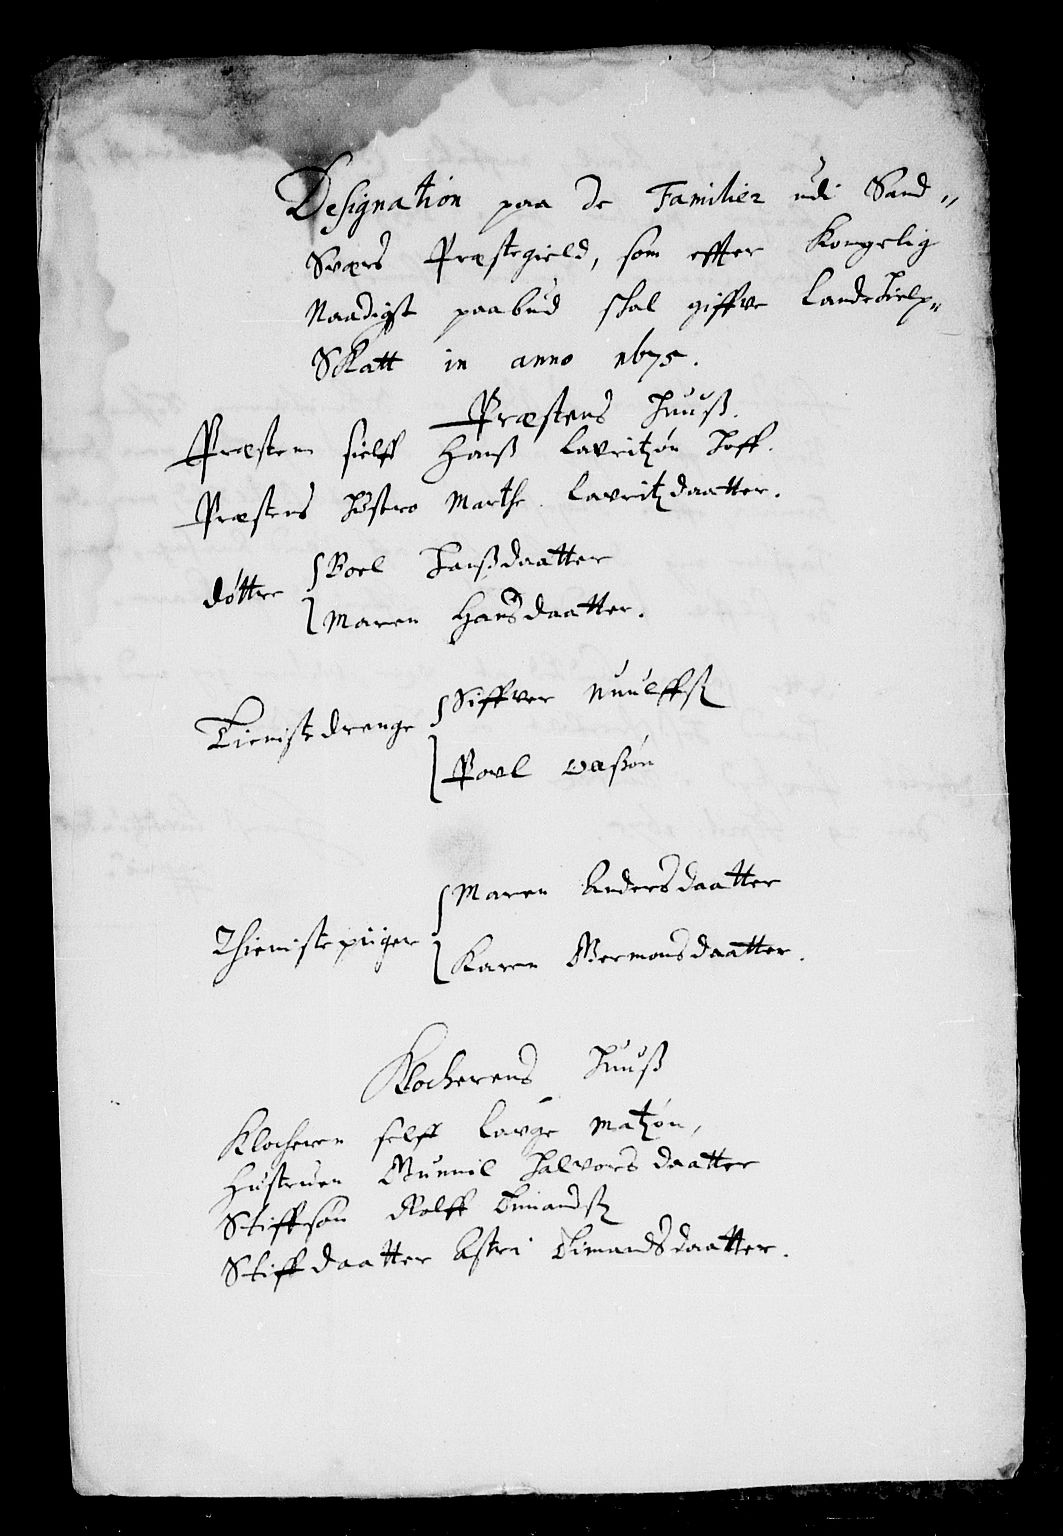 Designation paa de Familier udi Sand„
Sværs Præstegield, som effter Kongelig
Naadigst paabud skal giffve Landehielp„
Skatt in anno 1675.
Præstens Huuß.
Præsten sielff Hanß Lavritzøn Hoff.
Præstens Hustro Marthe Lavritzdaatter.
Døttre { Boel Hanßdaatter
Maren Hansdaatter.
Tienistedrenge { Siffver
Povl
Thienistepiiger { Maren Andersdaatter
Karen Germonsdaatter.
Klockerens Huuß
Klockeren selff Lauge Matzøn,
Hustruen Gunnil Halvorsdaatter
Stiffsøn Rolff
Stiffdaatter Astri Simandsdaatter.